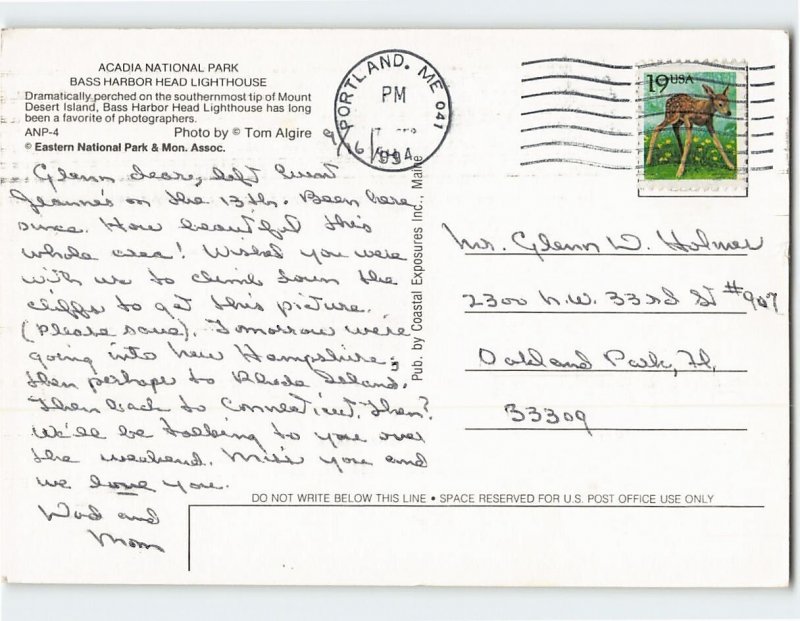 ACADIA NATIONAL PARK
BASS HARBOR HEAD LIGHTHOUSE
Dramatically perched on the southernmost tip of Mount
Desert Island, Bass Harbor Head Lighthouse has long
been a favorite of photographers.
ANP-4 Photo by © Tom Algire
© Eastern National Park & Mon. Assoc.
PORTLAND, ME 041
PM
1994
19 USA
9/16
Glenn dear, left Aunt
Jeanne's on the 13th. Been here
since. How beautiful this
whole area! Wished you were
with us to climb down the
cliffs to get this picture.
(Please save). Tomorrow we're
going into New Hampshire;
then perhaps to Rhode Island.
Then back to Connecticut. Then?
We'll be talking to you over
the weekend. Miss you and
we love you.
Dad and
Mom
Pub. by Coastal Exposures Inc., Maine
Mr. Glenn D. Holmes
2300 N.W. 33rd St #907
Oakland Park, Fl.
33309
DO NOT WRITE BELOW THIS LINE • SPACE RESERVED FOR U.S. POST OFFICE USE ONLY